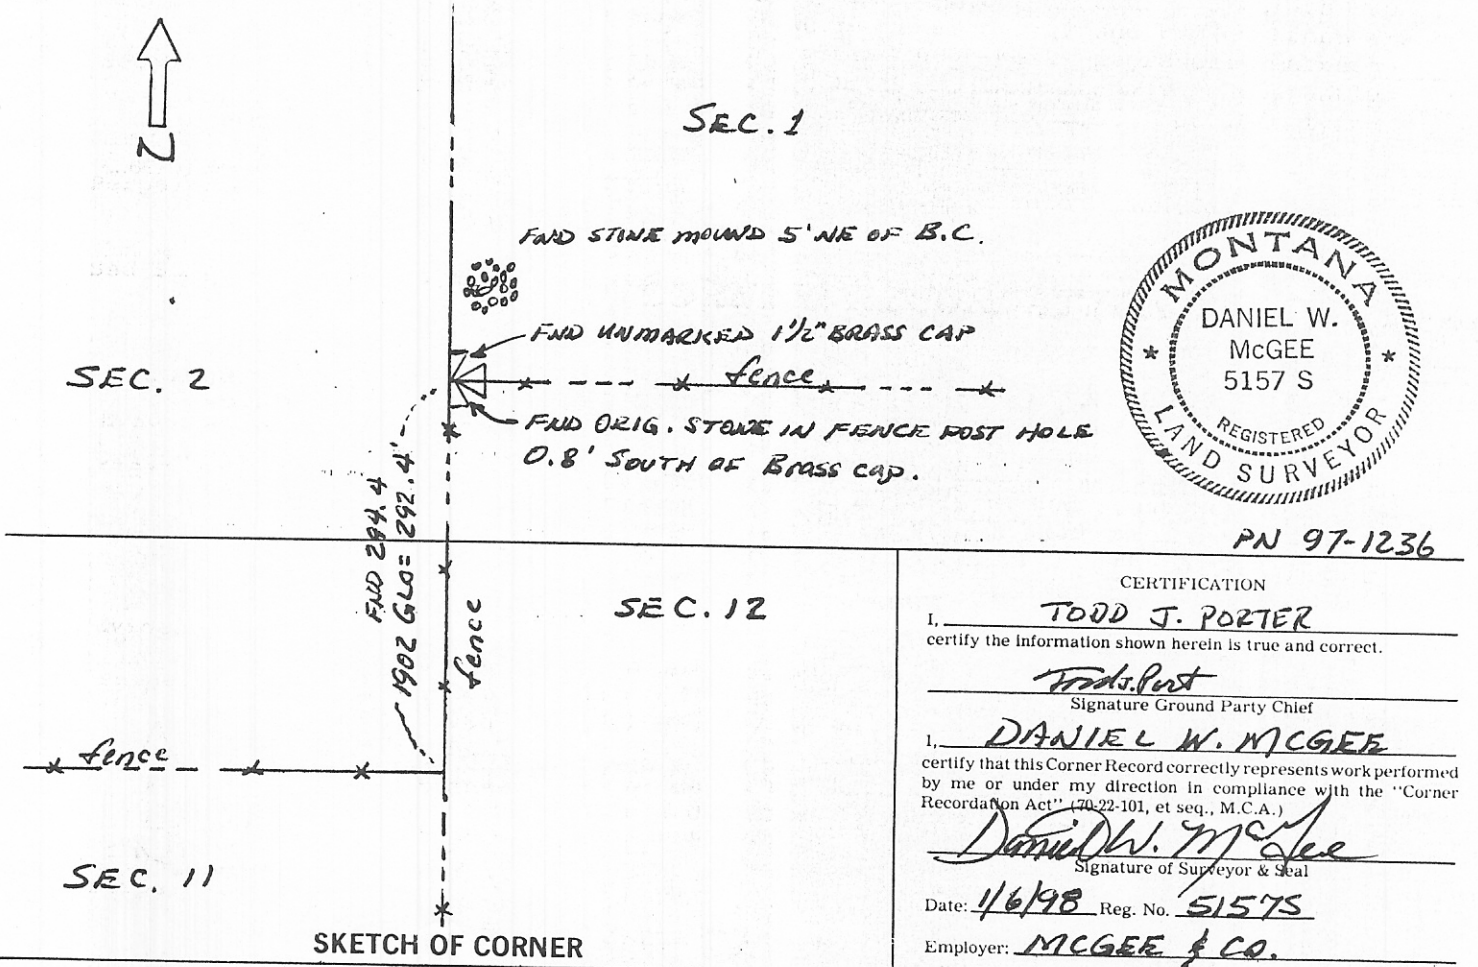 N
SEC. 1
FND STONE MOUND 5' NE OF B.C.
FND UNMARKED 1 1/2" BRASS CAP
SEC. 2
fence
FND ORIG. STONE IN FENCE POST HOLE
0.8' SOUTH OF Brass cap.
MONTANA
DANIEL W.
McGEE
5157 S
REGISTERED
LAND SURVEYOR
PN 97-1236
FND 294.4
1902 GLO = 292.4'
fence
SEC. 12
fence
SEC. 11
SKETCH OF CORNER
CERTIFICATION
I, TODD J. PORTER
certify the information shown herein is true and correct.
Todd J. Port
Signature Ground Party Chief
I, DANIEL W. MCGEE
certify that this Corner Record correctly represents work performed
by me or under my direction in compliance with the "Corner
Recordation Act" (70-22-101, et seq., M.C.A.)
Daniel W. McGee
Signature of Surveyor & Seal
Date: 1/6/98 Reg. No. 5157S
Employer: MCGEE & CO.